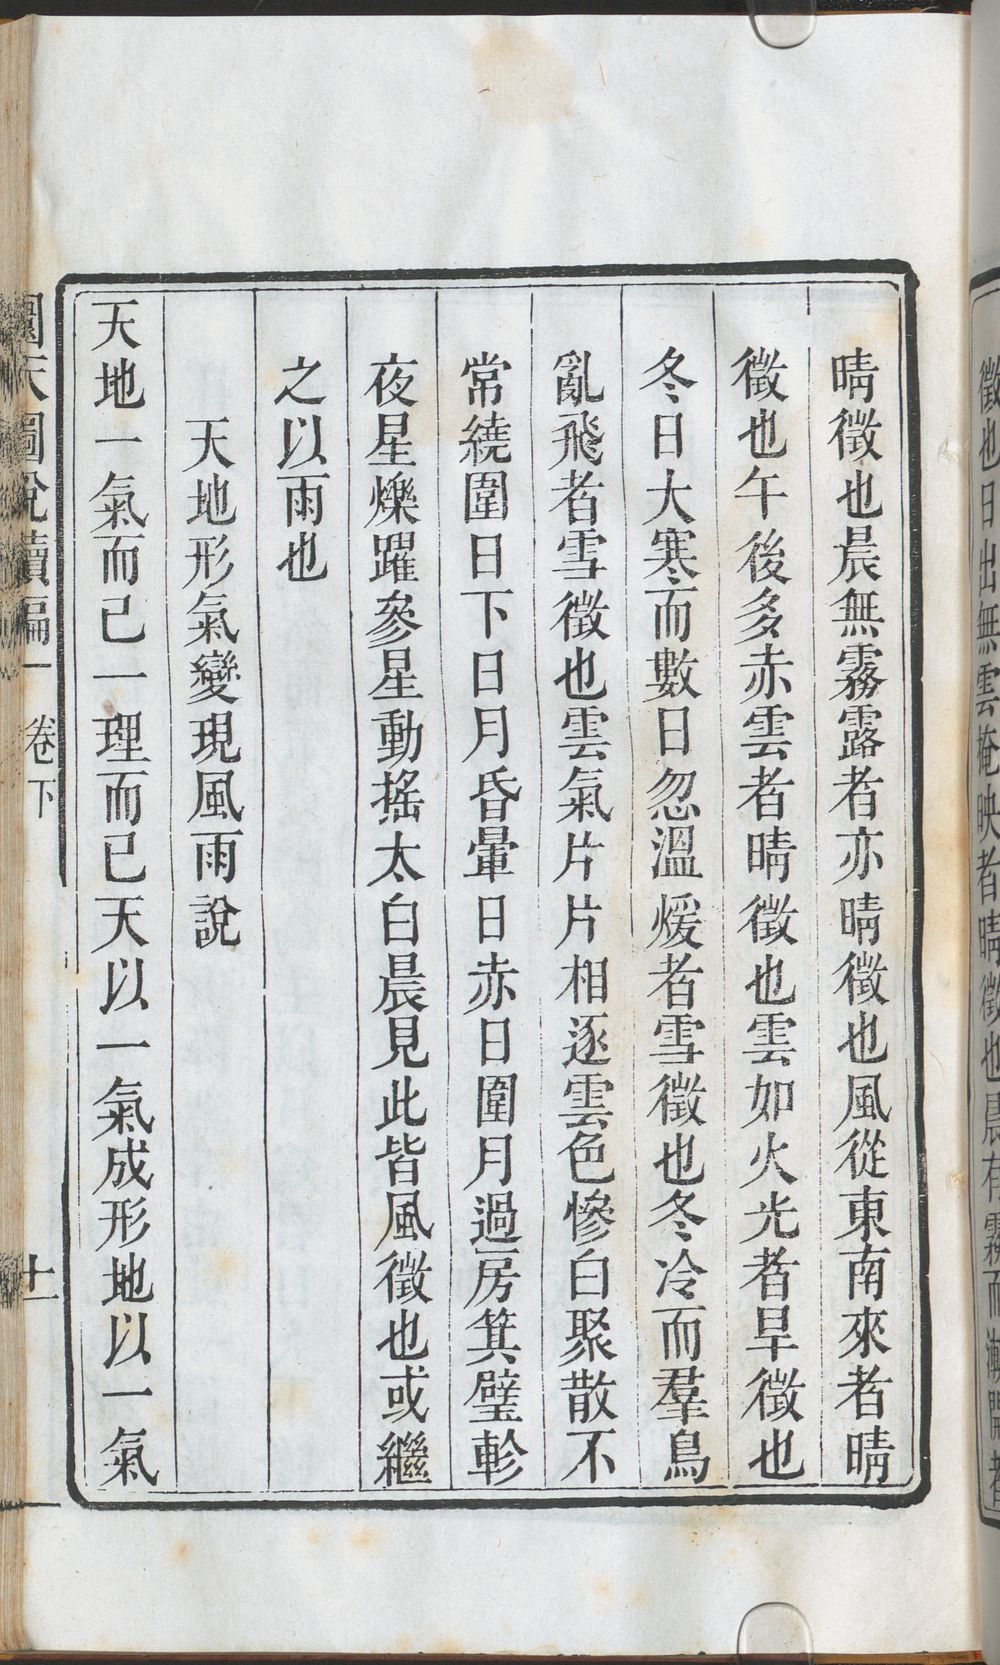 徵也日出無雲掩映者晴徵也晨有霧而漸開者
晴徵也晨無霧露者亦晴徵也風從東南來者晴
徵也午後多赤雲者晴徵也雲如火光者旱徵也
冬日大寒而數日忽溫煖者雪徵也冬冷而羣鳥
亂飛者雪徵也雲氣片片相逐雲色慘白聚散不
常繞圍日下日月昏暈日赤日圍月過房箕璧軫
夜星爍躍參星動搖太白晨見此皆風徵也或繼
之以雨也
天地形氣變現風雨說
天地一氣而已一理而已天以一氣成形地以一氣
圜天圖說續編 卷下 十一